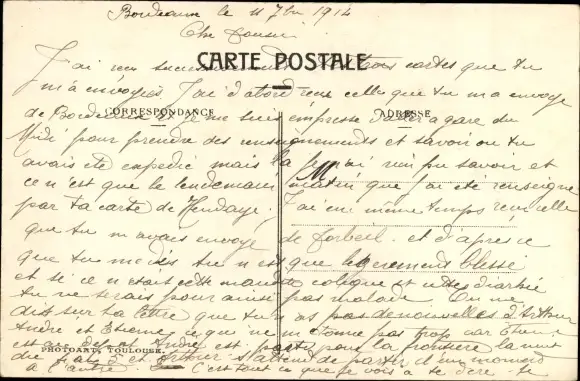 Bordeaux le 11 7bre 1914
Cher Cousin
CARTE POSTALE
J'ai reçu cartes que tu
m'a envoyées J'ai d'abord reçu celle que tu m'a envoyé
CORRESPONDANCE
ADRESSE
de Bordeaux je me suis empressé d'aller a gare du
Midi pour prendre des renseignements et savoir ou tu
avais été expedié mais la je n'ai rien pu savoir et
ce n'est que le lendemain matin que j'ai été renseigné
par ta carte de Hendaye. J'ai en même temps reçu celle
que tu m'avais envoyé de Corbeil. et d'après ce
que tu me dis tu n'est que légèrement blessé
et si ce n'était cette maudite colique et cette diarhée
tu ne serais pour ainsi pas malade. On me
dit sur ta lettre que tu n'as pas de nouvelles d'Arthur
Andre et Etienne ce qui ne m'étonne pas trop car Etienne
est Andre est parti pour la frontière la nuit
PHOTOARTS TOULOUSE
du 4 au 5 et Arthur s'attend de partir d'un moment
à l'autre. C'est tout ce que je vois à te dire